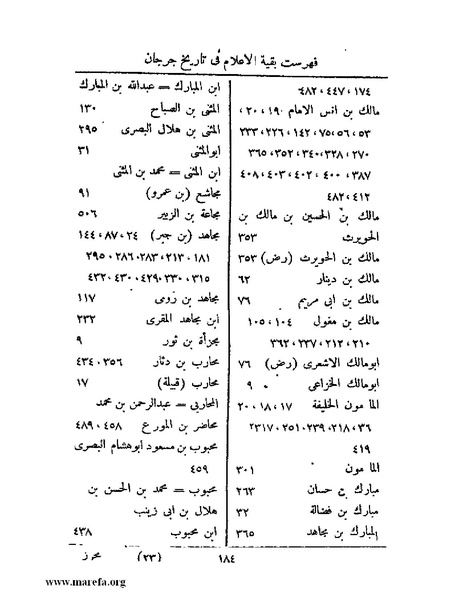 فهرست بقية الاعلام فى تاريخ جرجان
١٧٤، ٤٤٧، ٤٨٢
مالك بن انس الامام ١٩، ٢٠،
٥٣، ٥٦، ٧٥، ١٤٢، ٢٢٦، ٢٣٣
٢٧٠، ٣٢٨، ٣٤٠، ٣٥٢، ٣٦٥
٣٨٧، ٤٠٠، ٤٠٢، ٤٠٣، ٤٠٨
٤١٢، ٤٨٢
مالك بن الحسين بن مالك بن
الحويرث ٣٥٣
مالك بن الحويرث (رض) ٣٥٣
مالك بن دينار ٦٢
مالك بن ابى مريم ٧٦
مالك بن مغول ١٠٤، ١٠٥،
٢١٠، ٢١٢، ٢٣٧، ٣٦٢
ابومالك الاشعرى (رض) ٧٦
ابومالك الخزاعى ٩
الما مون الخليفة ١٧، ١٨، ٢٠،
٣٦، ٢١٨، ٢٣٩، ٢٥١، ٢٣١٧
٤١٩
الما مون ٣٠١
مبارك ج حسان ٢٦٣
مبارك بن فضالة ٣٢
المبارك بن مجاهد ٣٦٥
ابن المبارك = عبدالله بن المبارك
المثنى بن الصباح ١٣٠
المثنى بن هلال البصرى ٢٩٥
ابوالمثنى ٣١
ابن المثنى = محمد بن المثنى
مجاشع (بن عمرو) ٩١
مجاعة بن الزبير ٥٠٦
مجاهد (بن جبر) ٢٤، ٨٧، ١٤٤
١٨١، ٢١٣، ٢٨٣، ٢٨٦، ٢٩٥
٣١٥، ٣٣٠، ٤٢٩، ٤٣٠، ٤٣٢
مجاهد بن زوى ١١٧
ابن مجاهد المقرى ٢٣٢
مجزأة بن ثور ٩
محارب بن دثار ٣٥٦، ٤٣٤
محارب (قبيلة) ١٧
المحاربى = عبدالرحمن بن محمد
محاضر بن المورع ٤٥٨، ٤٨٩
محبوب بن مسعود ابوهشام البصرى
٤٥٩
محبوب = محمد بن الحسن بن
هلال بن ابى زينب
ابن محبوب ٤٣٨
١٨٤ (٢٣) محرز
www.marefa.org